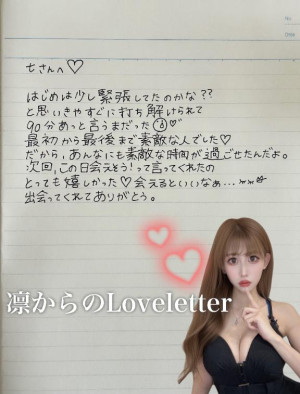 七さんへ♡
はじめは少し緊張してたのかな??
と思いきやすぐに打ち解けられて
90分あっと言うまだった♡
最初から最後まで素敵な人でした♡
だから、あんなにも素敵な時間が過ごせたんだよ。
次回、この日会えそう!って言ってくれたの
とっても嬉しかった♡会えるといいなぁ...
出会ってくれてありがとう。
凛からのLoveletter